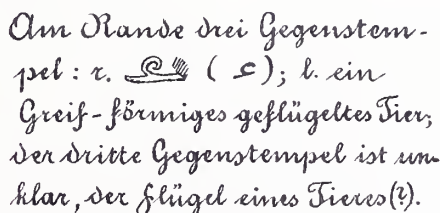 Am Rande drei Gegenstem-
pel : r. ( ); l. ein
Greif-förmiges geflügeltes Tier;
der dritte Gegenstempel ist un-
klar, der Flügel eines Tieres(?).